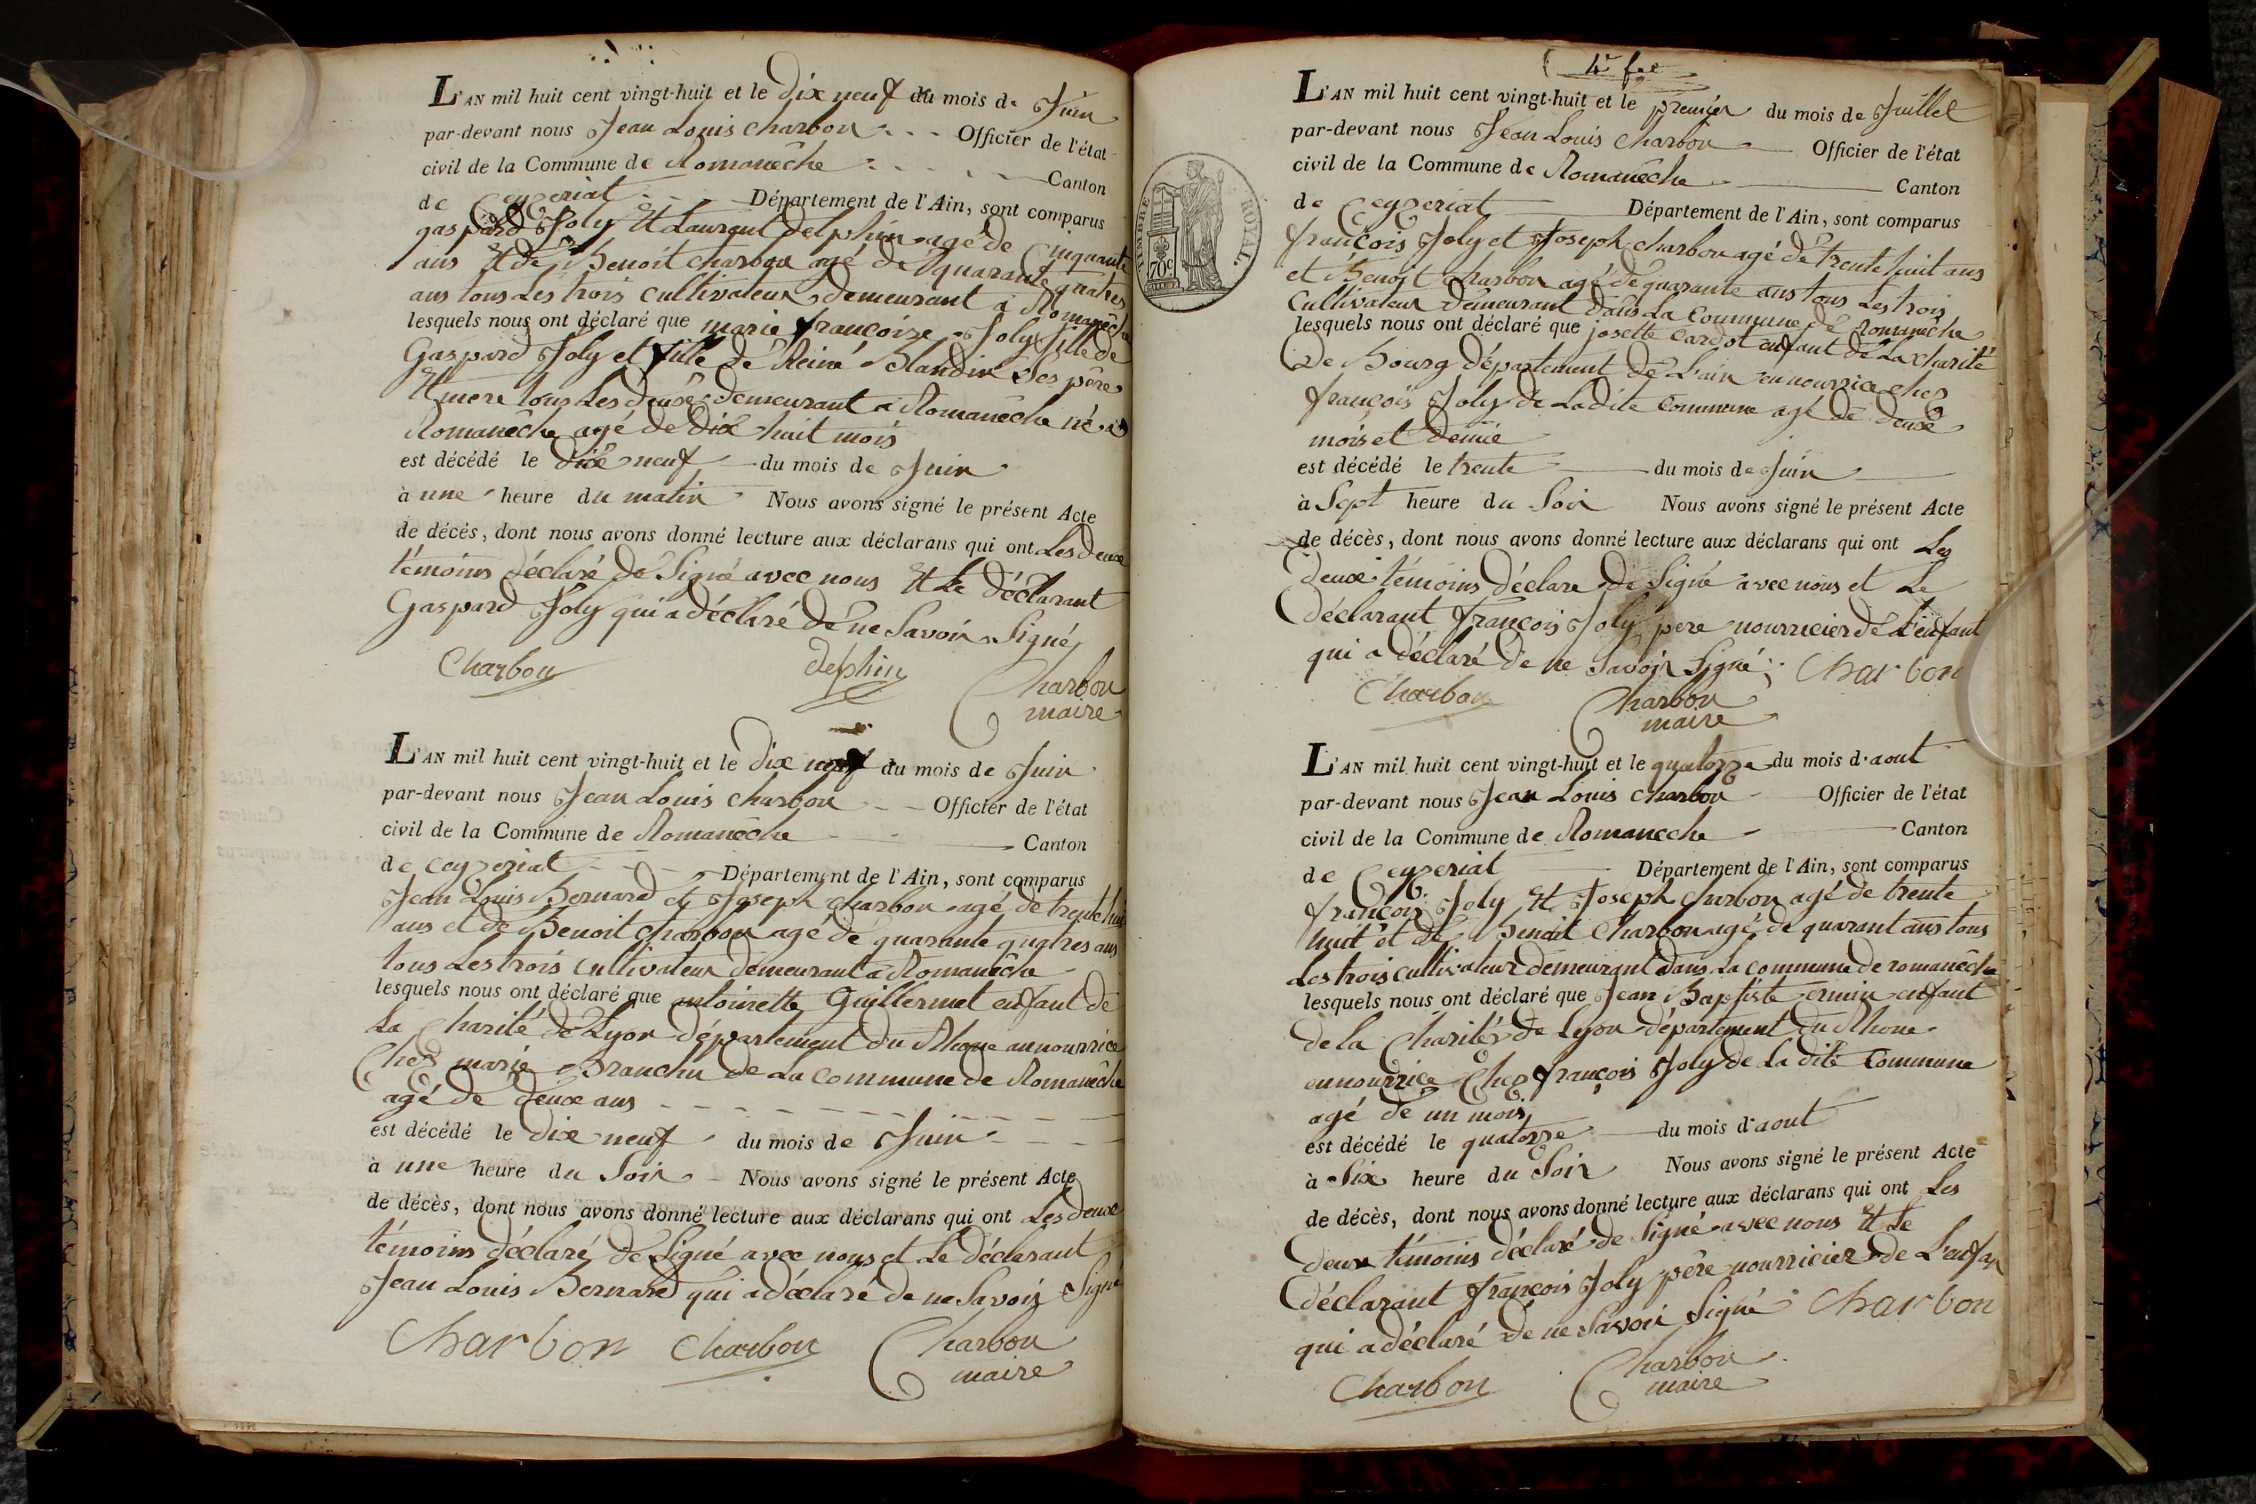 L'AN mil huit cent vingt-huit et le dix neuf du mois de Juin
par-devant nous Jean Louis charbon Officier de l'état
civil de la Commune de Romanêche Canton
de Ceyzeriat Département de l'Ain, sont comparus
gaspard Joly Et Laurent Delphin agé de Cinquante
ans Et de Benoit charbon agé de quarante quatres
ans tous Les trois Cultivateur demeurant a Romanêche
lesquels nous ont déclaré que marie françoise Joly fille de
Gaspard Joly et fille de Reine Blandin ses père
Et mere tous Les deuse demeurant a Romanêche né a
Romanêche agé de dix huit mois
est décédé le dix neuf du mois de Juin
à une heure du matin Nous avons signé le présent Acte
de décès, dont nous avons donné lecture aux déclarans qui ont Les deux
témoins déclaré de Signé avec nous Et Le déclarant
Gaspard Joly qui a déclaré de ne Savoir Signé
Charbon delphin Charbon
maire
L'AN mil huit cent vingt-huit et le dix neuf du mois de Juin
par-devant nous Jean Louis charbon Officier de l'état
civil de la Commune de Romanêche Canton
de Ceyzeriat Département de l'Ain, sont comparus
Jean Louis Bernard et Joseph charbon agé de trente huit
ans et de Benoit charbon agé de quarante quatres ans
tous Les trois cultivateur demeurant a Romanêche
lesquels nous ont déclaré que antoinette Guillermet enfant de
La Charité de Lyon département du Rhone annourrice
Chez marie Branchu de La commune de Romanêche
agé de deux ans
est décédé le dix neuf du mois de Juin
à une heure du Soir Nous avons signé le présent Acte
de décès, dont nous avons donné lecture aux déclarans qui ont Les deux
témoins déclaré de Signé avec nous et Le déclarant
Jean Louis Bernard qui a déclaré de ne Savoir Signé
Charbon Charbon Charbon
maire
4e
TIMBRE ROYAL.
70c
L'AN mil huit cent vingt-huit et le premier du mois de Juillet
par-devant nous Jean Louis charbon Officier de l'état
civil de la Commune de Romanêche Canton
de Ceyzeriat Département de l'Ain, sont comparus
françois Joly et Joseph charbon agé de trente huit ans
et Benoit charbon agé de quarante ans tous Les trois
Cultivateur demeurant dans La Commune de Romanêche
lesquels nous ont déclaré que josette Cardot enfant de La Charité
De Bourg département de L'ain ennourrice chez
françois Joly de Ladite Commune agé de deux
mois et demie
est décédé le trente du mois de Juin
à Sept heure du Soir Nous avons signé le présent Acte
de décès, dont nous avons donné lecture aux déclarans qui ont Les
deux témoins déclare de Signé avec nous et Le
déclarant françois Joly pere nourricier de L'enfant
qui a déclaré de ne Savoir Signé Charbon
Charbon Charbon
maire
L'AN mil huit cent vingt-huit et le quatorze du mois d'aout
par-devant nous Jean Louis charbon Officier de l'état
civil de la Commune de Romaneche Canton
de Ceyzeriat Département de l'Ain, sont comparus
françois Joly Et Joseph charbon agé de trente
huit et de Benoit Charbon agé de quarant ans tous
Les trois cultivateur demeurant dans La commune de romanêche
lesquels nous ont déclaré que Jean Baptiste ermin enfant
de la Charité de Lyon département du Rhone
ennourrice chez françois Joly de La dite Commune
agé de un mois
est décédé le quatorze du mois d'aout
à Six heure du Soir Nous avons signé le présent Acte
de décès, dont nous avons donné lecture aux déclarans qui ont Les
deux témoins déclaré de Signé avec nous Et Le
déclarant françois Joly père nourricier de L'enfan
qui a déclaré de ne Savoir Signé Charbon
Charbon Charbon
maire